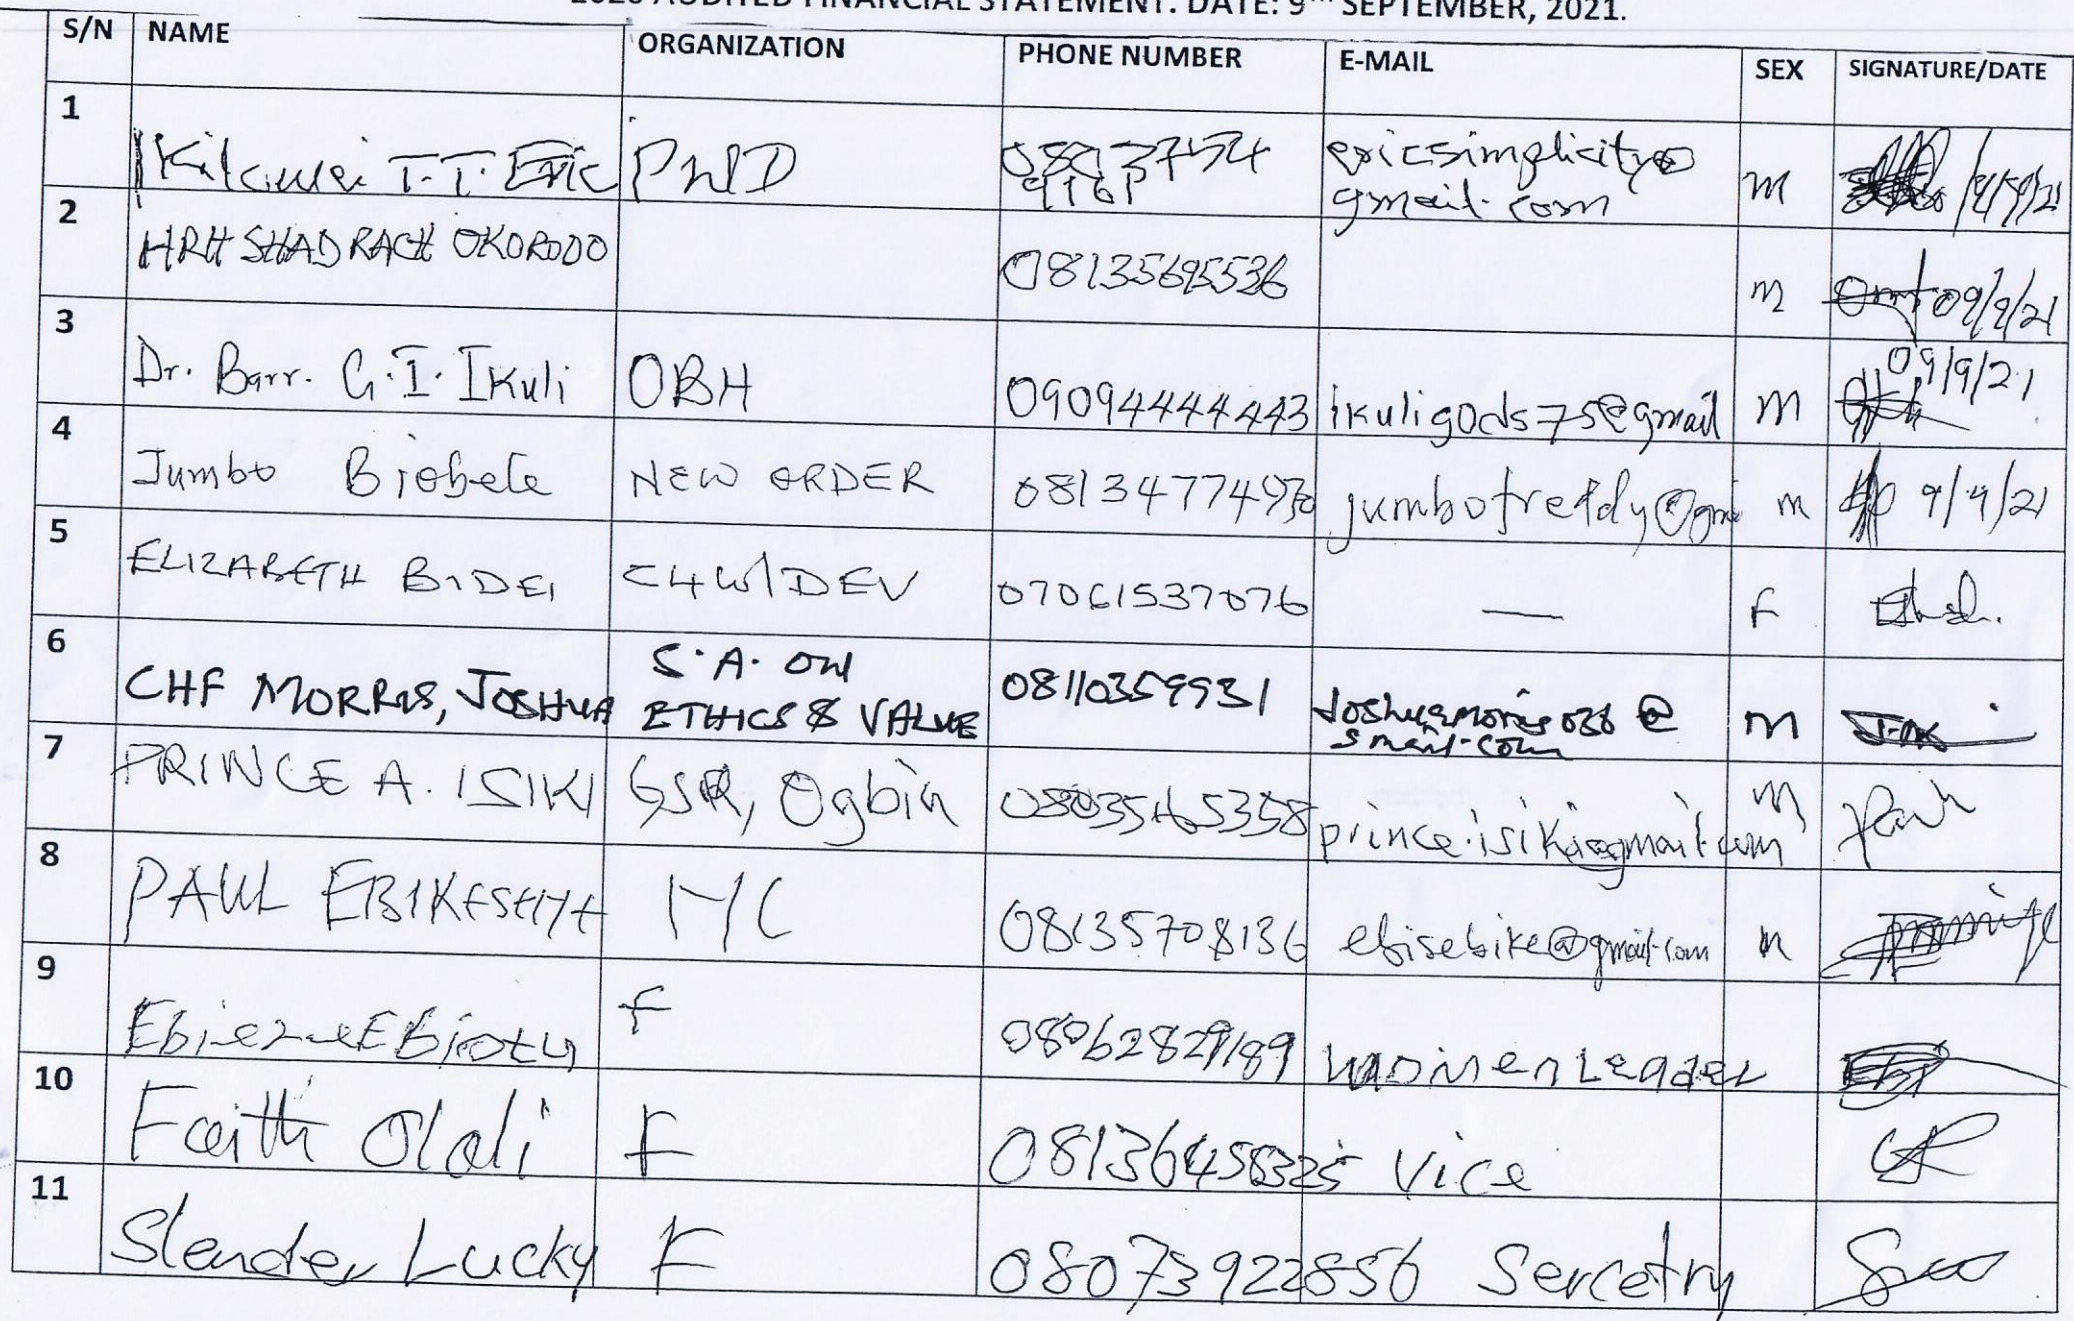 2020 AUDITED FINANCIAL STATEMENT. DATE: 9TH SEPTEMBER, 2021.
S/N NAME ORGANIZATION PHONE NUMBER E-MAIL SEX SIGNATURE/DATE
1 T.T. Eric PWD ericsimplicity@ m
gmail.com
2 HRH SHADRACH OKORODO 08135695536 m 09/9/21
3 Dr. Barr. G.I. Ikuli OBH 09094444443 ikuligods75@gmail m 09/9/21
4 Jumbo Biobele NEW ORDER jumbofreddy@gm m 9/9/21
5 ELIZABETH BIDEI C4W/DEV 07061537076 — F
6 CHF MORRIS, JOSHUA S.A. ON 08110359931 Joshuamorris036@ m
ETHICS & VALUE gmail.com
7 PRINCE A. ISIKI GSR, Ogbia 08035465358 prince.isiki@gmail.com m
8 PAUL 08135708136 ebisebike@gmail.com m
9 F women Leader
10 Faith Olali F Vice
11 Slender Lucky F 08073922856 Sercetry